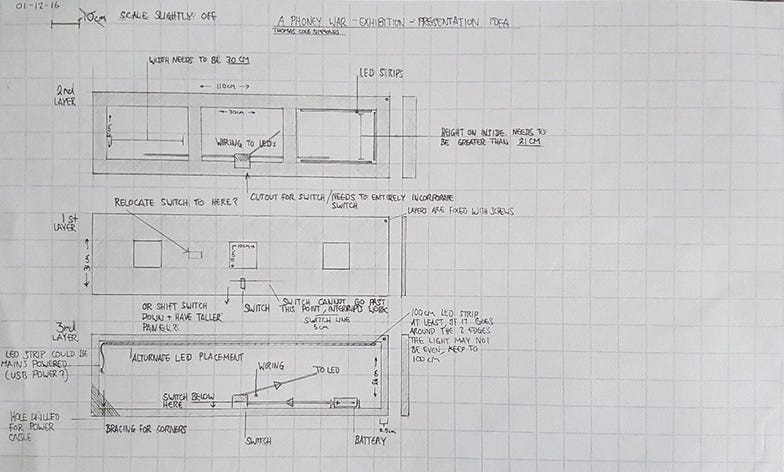 01-12-16
10cm SCALE SLIGHTLY OFF
A PHONEY WAR - EXHIBITION - PRESENTATION IDEA
THOMAS
WIDTH NEEDS TO BE 30CM
110cm
LED STRIPS
2nd
LAYER
30cm
WIRING TO LEDs
HEIGHT ON INSIDE NEEDS TO
BE GREATER THAN 21CM
CUTOUT FOR SWITCH/NEEDS TO ENTIRELY INCORPORATE
SWITCH
RELOCATE SWITCH TO HERE?
LAYERS ARE FIXED WITH SCREWS
1st
LAYER
10cm
OR SHIFT SWITCH
DOWN + HAVE TALLER
PANEL?
SWITCH
SWITCH CANNOT GO PAST
THIS POINT, INTERRUPTS WORK
SWITCH LINE
5cm
100cm LED STRIP
AT LEAST, IF IT GOES
AROUND THE 2 EDGES
THE LIGHT MAY NOT
BE EVEN, KEEP TO
100cm
3rd
LAYER
LED STRIP COULD BE
MAINS POWERED
(USB POWER?)
ALTERNATE LED PLACEMENT
WIRING
TO LED
SWITCH BELOW
HERE
HOLE DRILLED
FOR POWER
CABLE
BRACING FOR CORNERS
SWITCH
BATTERY